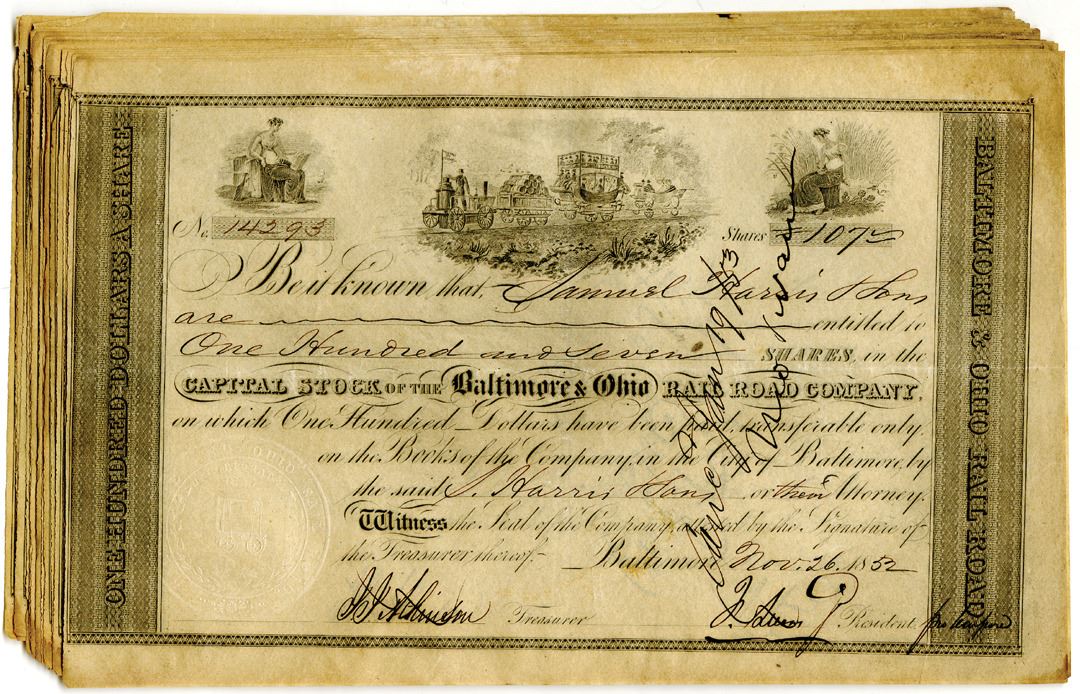 ONE HUNDRED DOLLARS A SHARE
BALTIMORE & OHIO RAIL ROAD
No. 14293
Shares 107
Be it known, that, Samuel Harris & Sons
are entitled to
One Hundred and Seven SHARES, in the
CAPITAL STOCK OF THE Baltimore & Ohio RAIL ROAD COMPANY,
on which One Hundred Dollars have been paid, transferable only,
on the Books of the Company, in the City of Baltimore, by
the said S. Harris & Sons or their Attorney.
Witness the Seal of the Company, attested by the Signature of
the Treasurer, thereof. Baltimore Nov. 26. 1852
J. J. Atkinson Treasurer
President, pro tempore